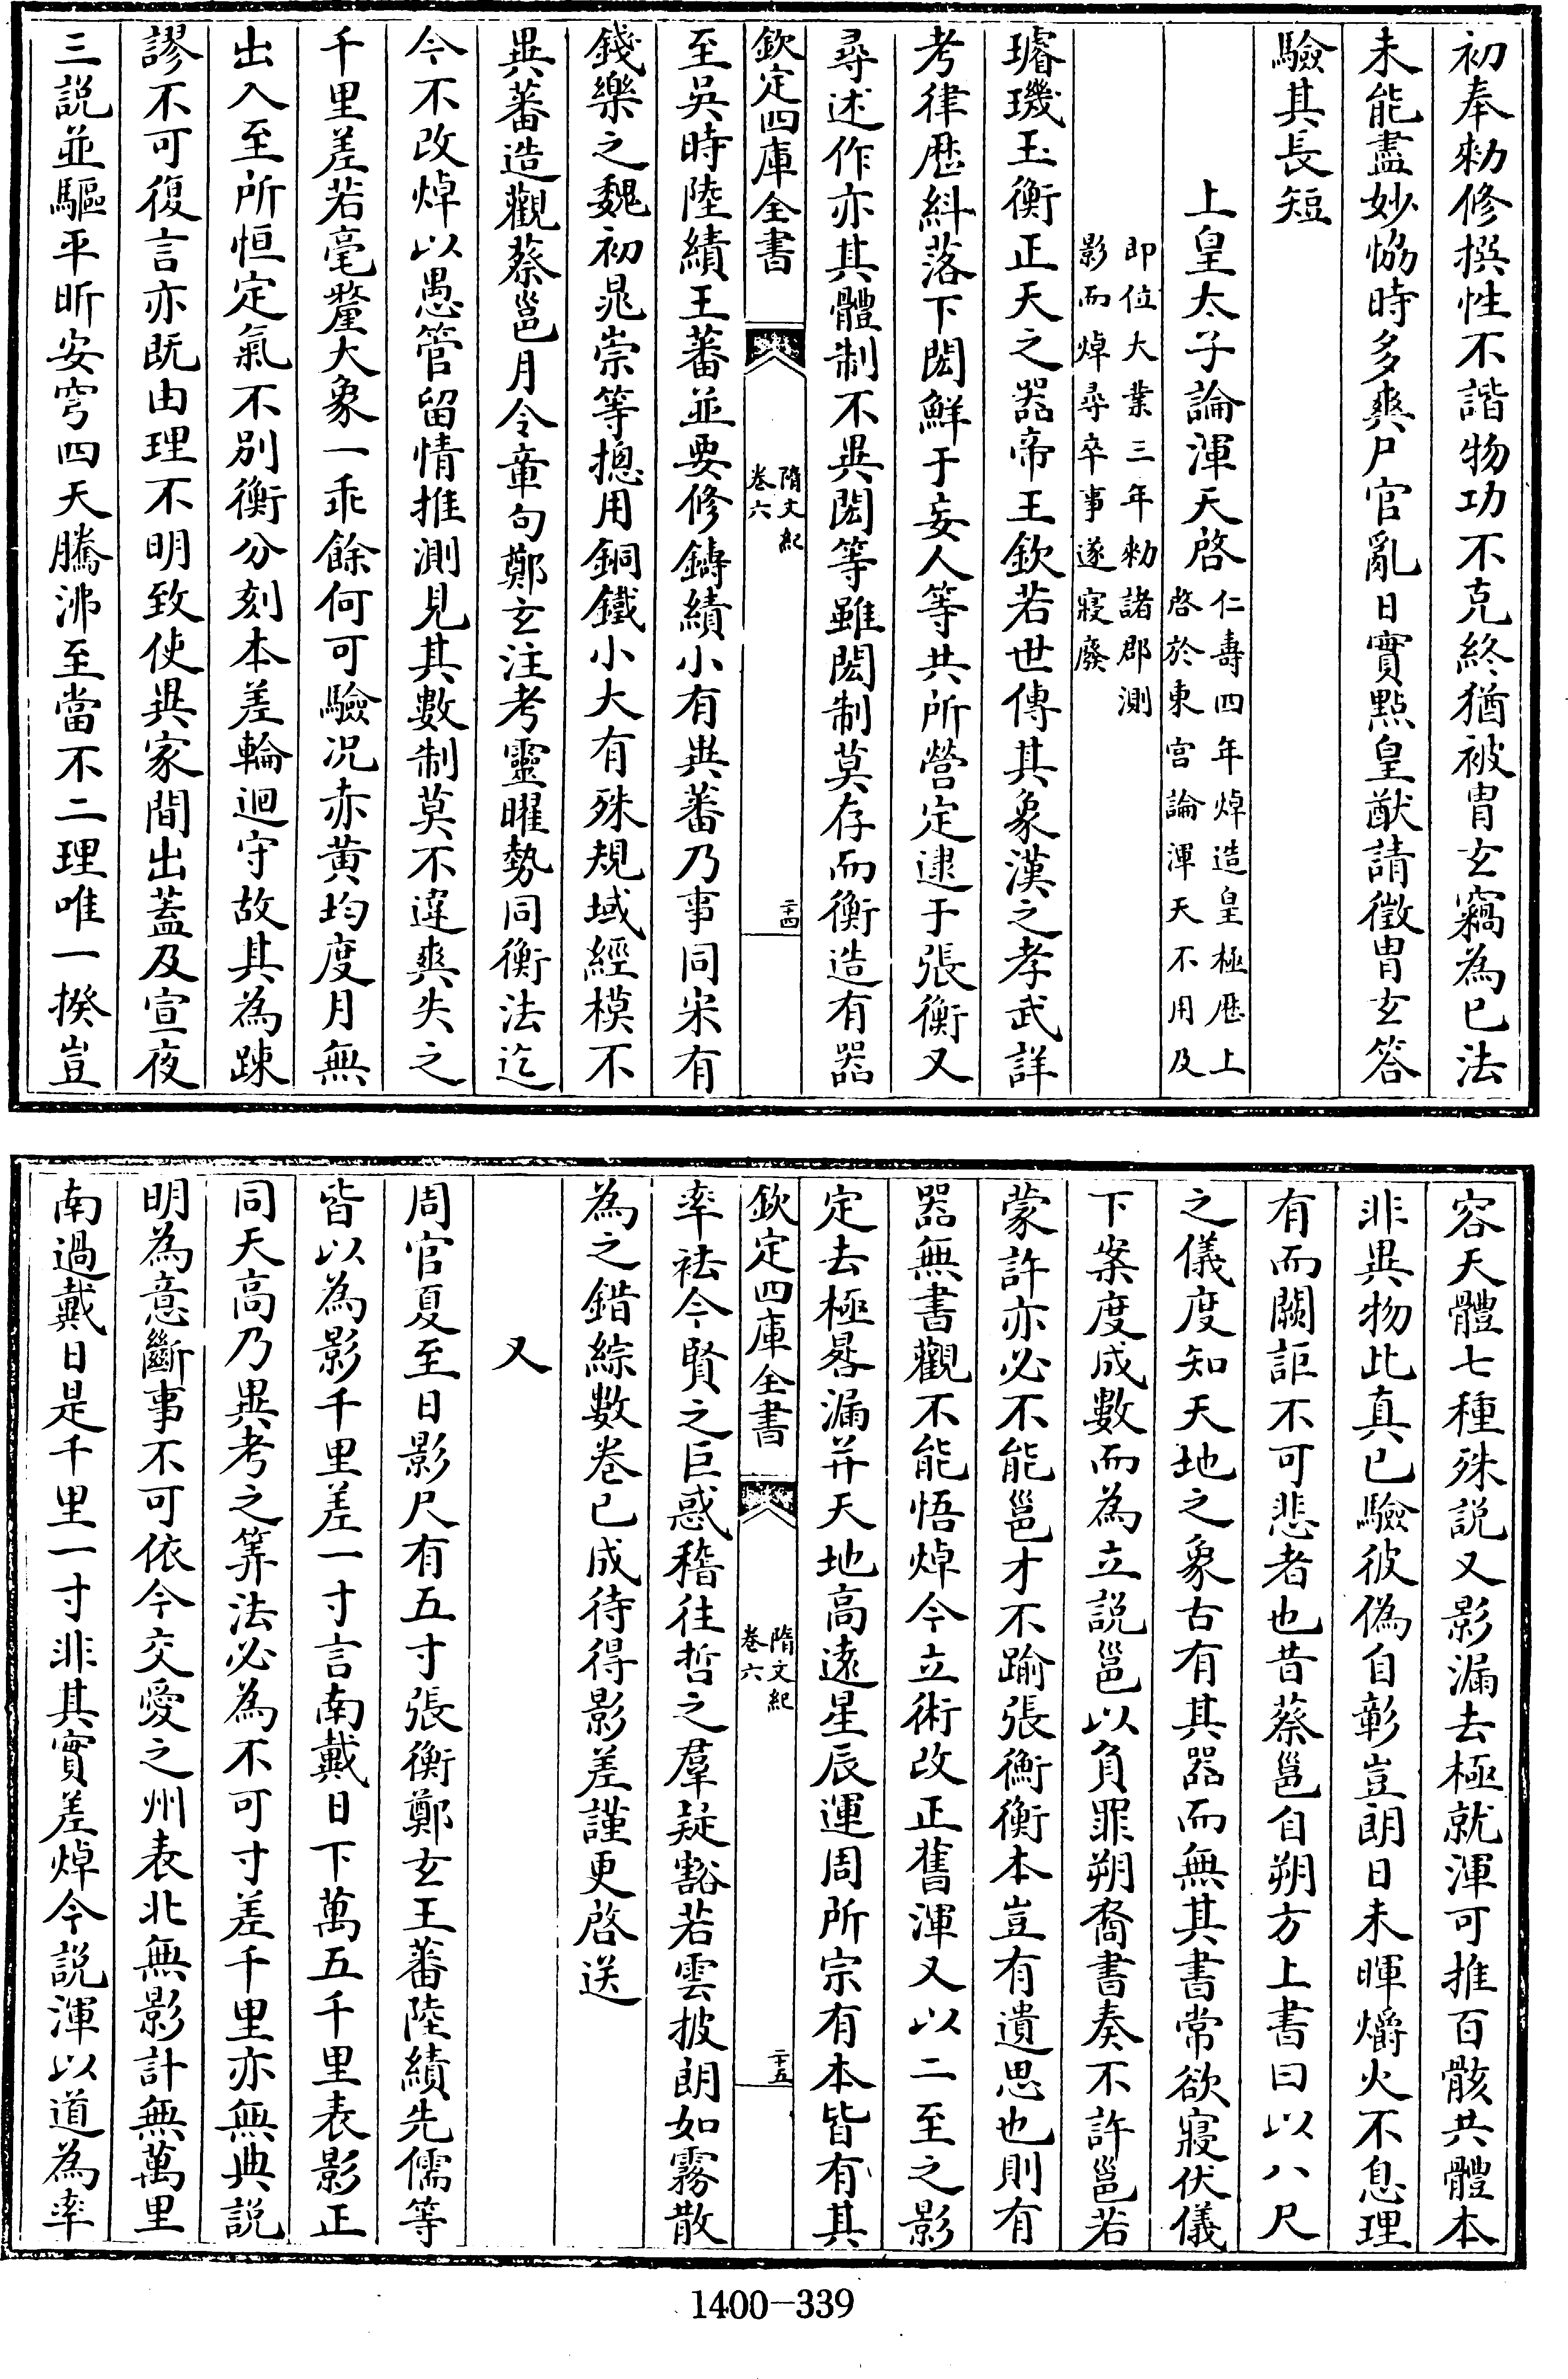 初奉勑修撰性不諧物功不克終猶被胄玄竊為已法
未能盡妙恊時多爽尸官亂日實㸃皇猷請徵胄玄答
驗其長短
上皇太子論渾天啓仁壽四年焯造皇極歷上
啓於東宫論渾天不用及
即位大業三年勑諸郡測
影而焯尋卒事遂寢廢
璿璣玉衡正天之器帝王欽若世傳其象漢之孝武詳
考律歴糾落下閎鮮于妄人等共所營定逮于張衡又
尋述作亦其體制不異閎等雖閎制莫存而衡造有器
欽定四庫全書
隋文紀
卷六
二十四
至吳時陸績王蕃並要修鑄績小有異蕃乃事同宋有
錢樂之魏初晁崇等揔用銅鐵小大有殊規域經模不
異蕃造觀蔡邕月令章句鄭玄注考靈曜勢同衡法迄
今不改焯以愚管留情推測見其數制莫不違爽失之
千里差若毫釐大象一乖餘何可驗况赤黄均度月無
出入至所恒定氣不别衡分刻本差輪迴守故其為踈
謬不可復言亦既由理不明致使異家間出蓋及宣夜
三説並驅平昕安穹四天騰沸至當不二理唯一揆豈
容天體七種殊説又影漏去極就渾可推百骸共體本
非異物此真已驗彼偽自彰豈朗日未暉爝火不息理
有而闕詎不可悲者也昔蔡邕自朔方上書曰以八尺
之儀度知天地之象古有其器而無其書常欲寢伏儀
下案度成數而為立説邕以負罪朔裔書奏不許邕若
蒙許亦必不能邕才不踰張衡衡本豈有遺思也則有
器無書觀不能悟焯今立術改正舊渾又以二至之影
定去極晷漏并天地高逺星辰運周所宗有本皆有其
欽定四庫全書
隋文紀
卷六
二十五
率袪今賢之巨惑稽往哲之羣疑豁若雲披朗如霧散
為之錯綜數卷已成待得影差謹更啓送
又
周官夏至日影尺有五寸張衡鄭玄王蕃陸績先儒等
皆以為影千里差一寸言南戴日下萬五千里表影正
同天高乃異考之筭法必為不可寸差千里亦無典説
明為意斷事不可依今交愛之州表北無影計無萬里
南過戴日是千里一寸非其實差焯今説渾以道為率
1400-339